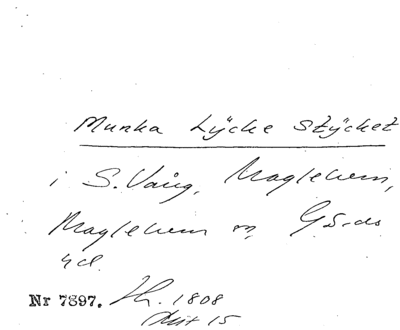 Munka Lycke Stycket
i S. Vång, Maglehem,
Maglehem sn, Gärds
hd.
Nr 7897. Th. 1808
Akt 15